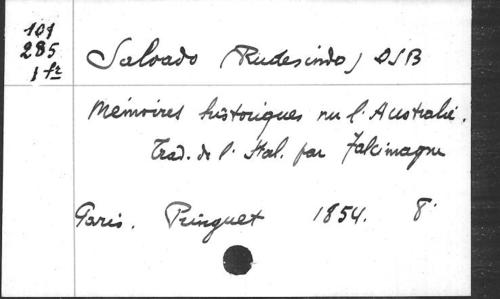 101
285
1 fr
Salvado (Rudesindo) OSB
Mémoires historiques sur l'Australie.
Trad. de l'Ital. par Falcimagne
Paris. Pringuet 1854. 8°